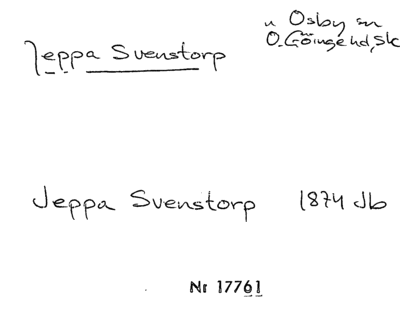 Jeppa Svenstorp
n Osby sn
Ö.Göinge hd, Sk
Jeppa Svenstorp 1874 Jb
Nr 17761